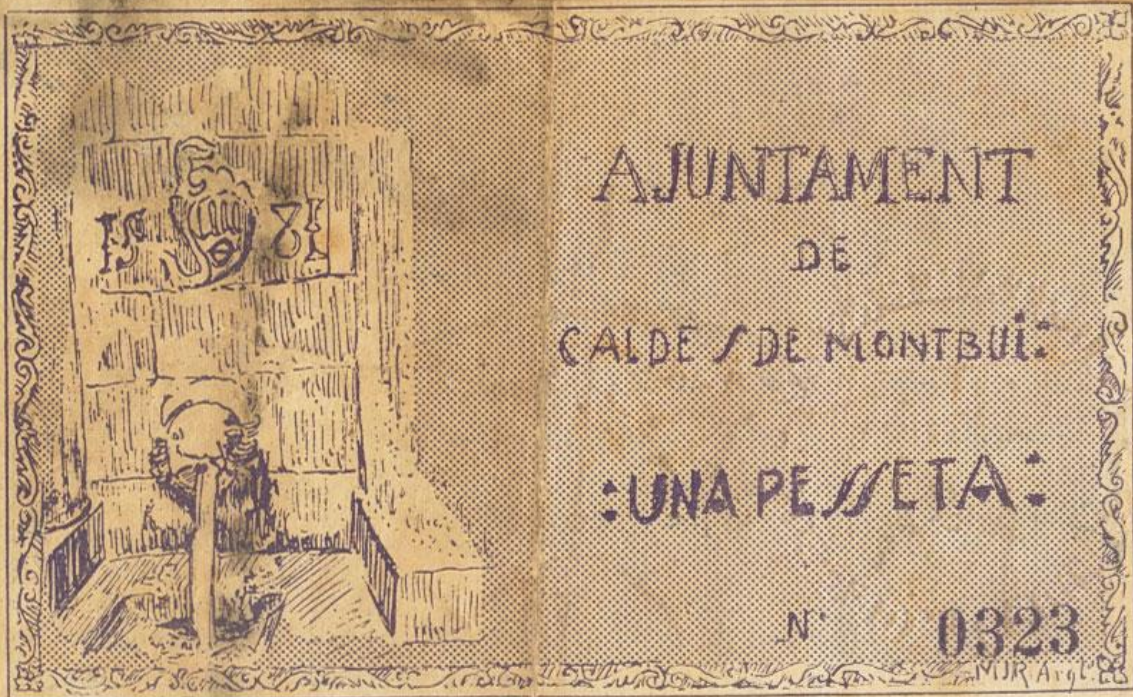 1581
AJUNTAMENT
DE
CALDES DE MONTBUI:
:UNA PESSETA:
Nº 0323